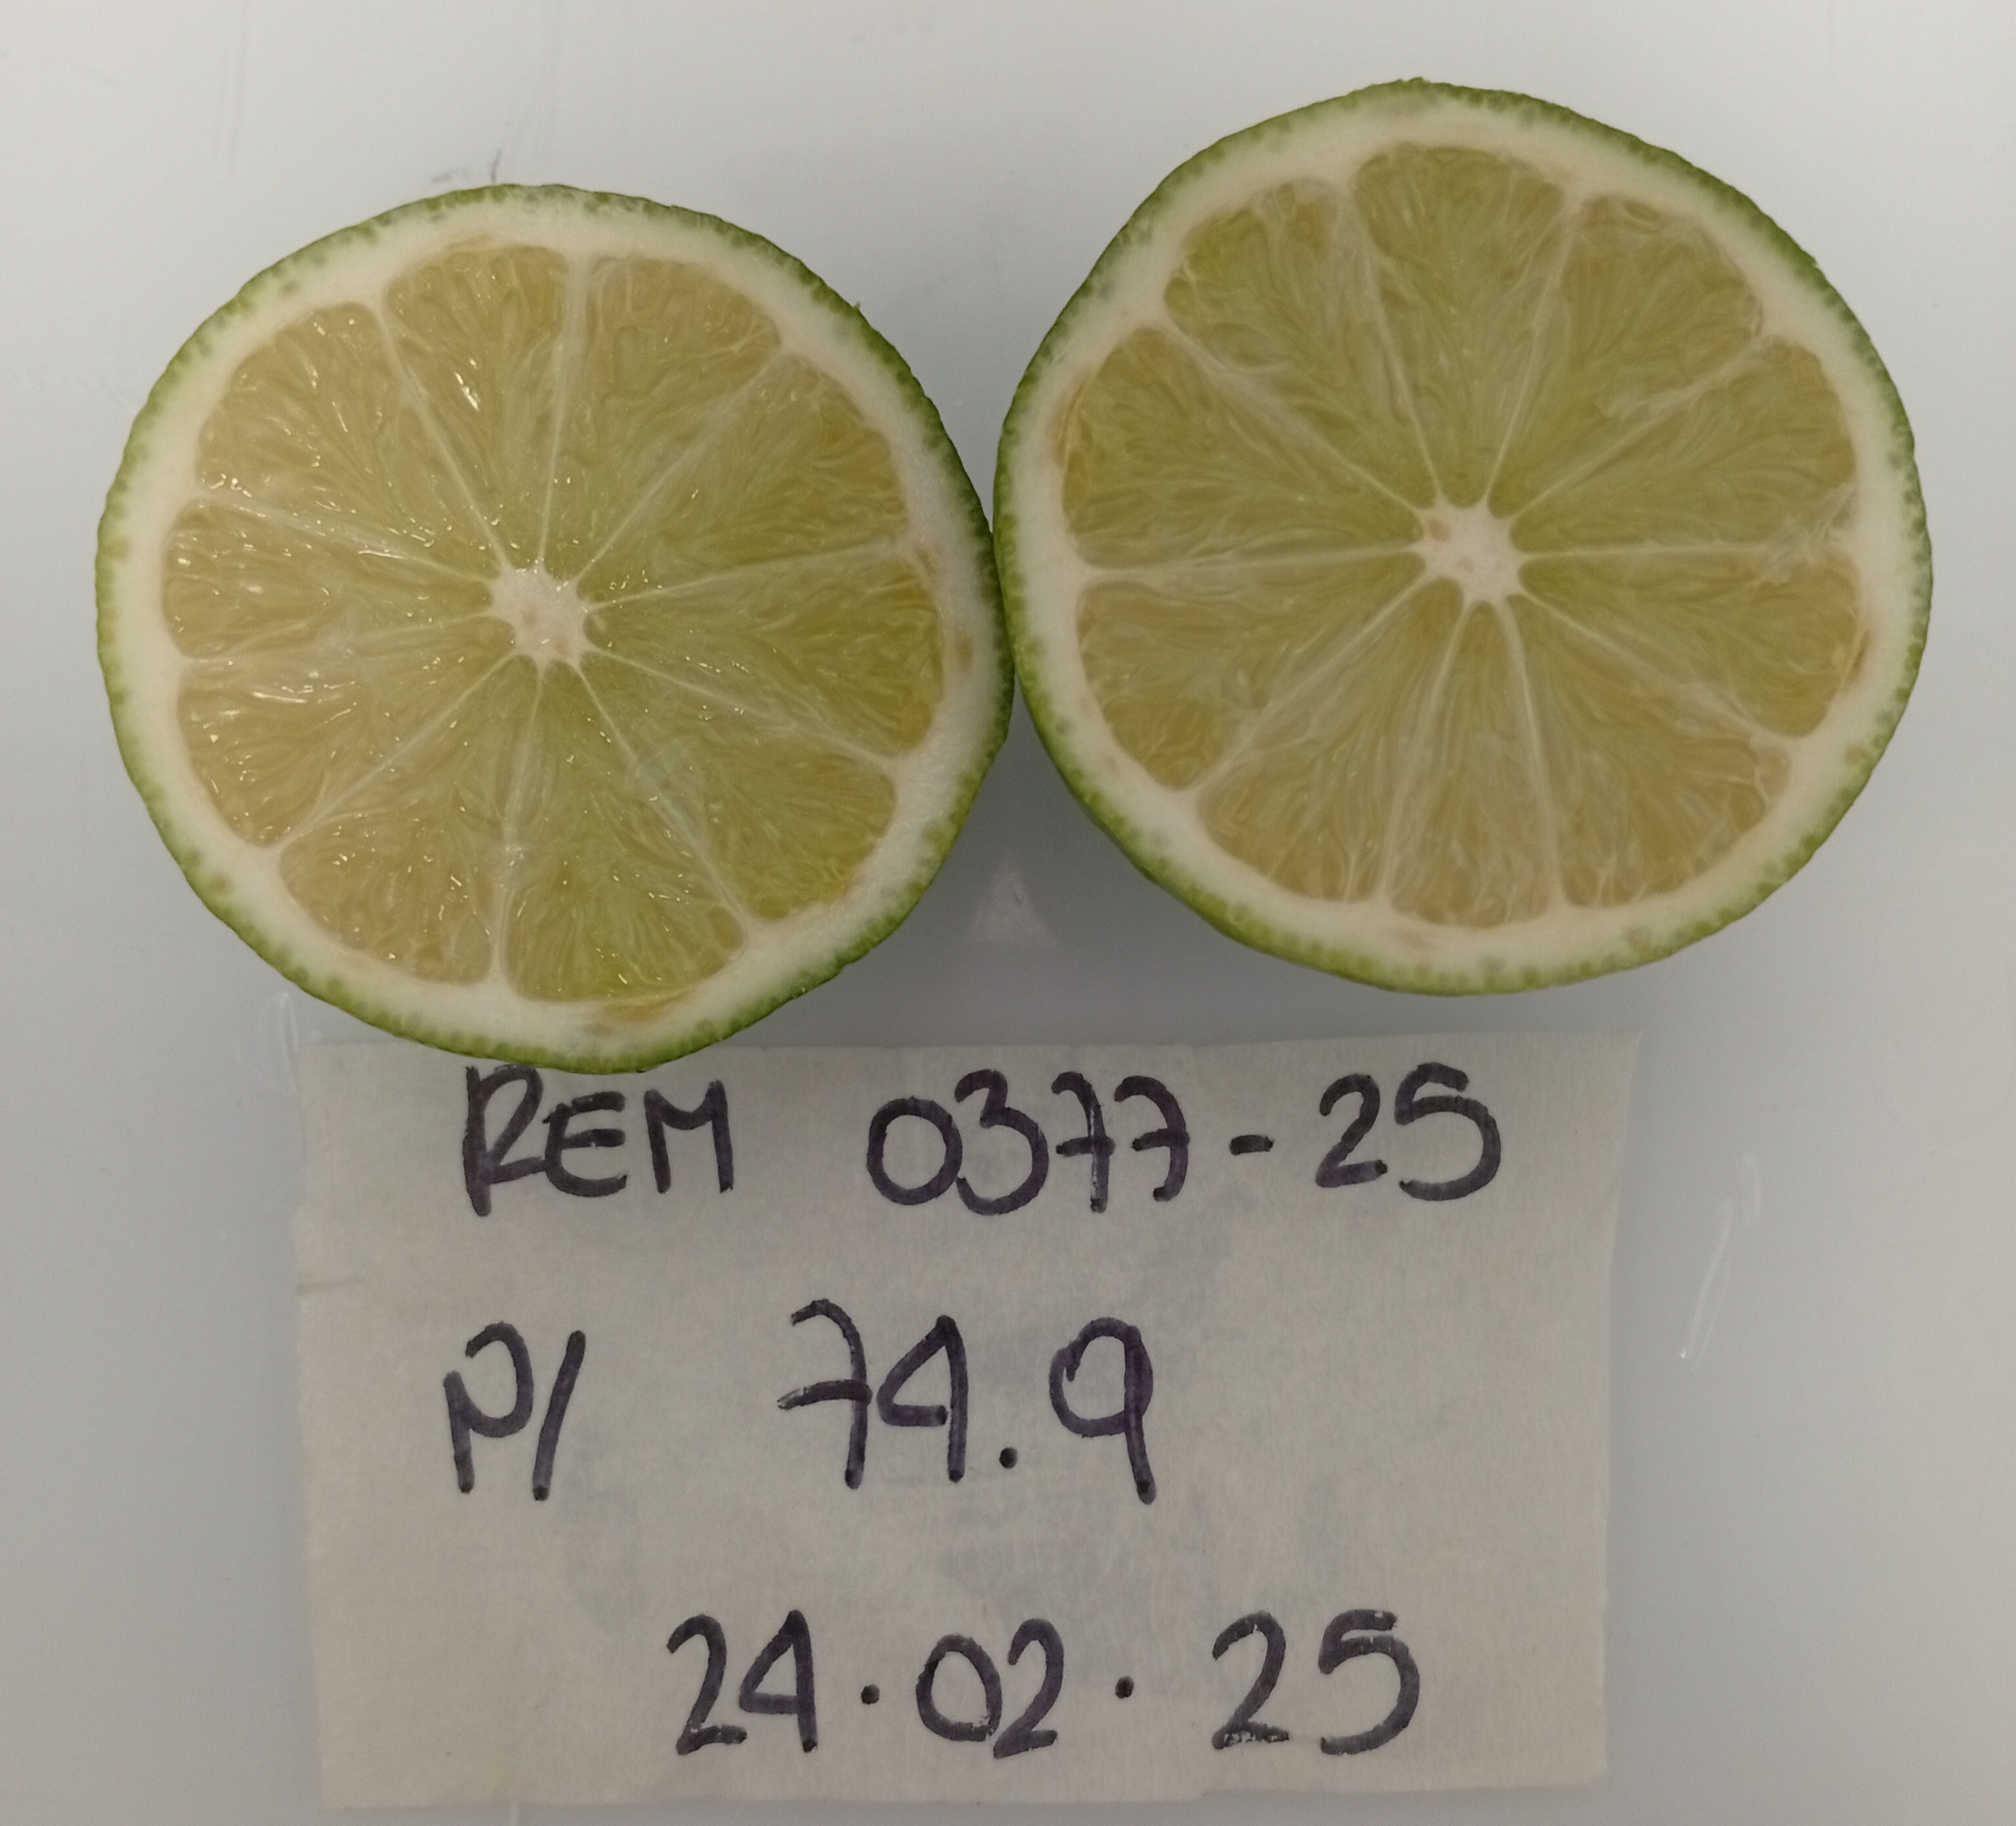 REM 0377-25
P/ 74.9
24.02.25